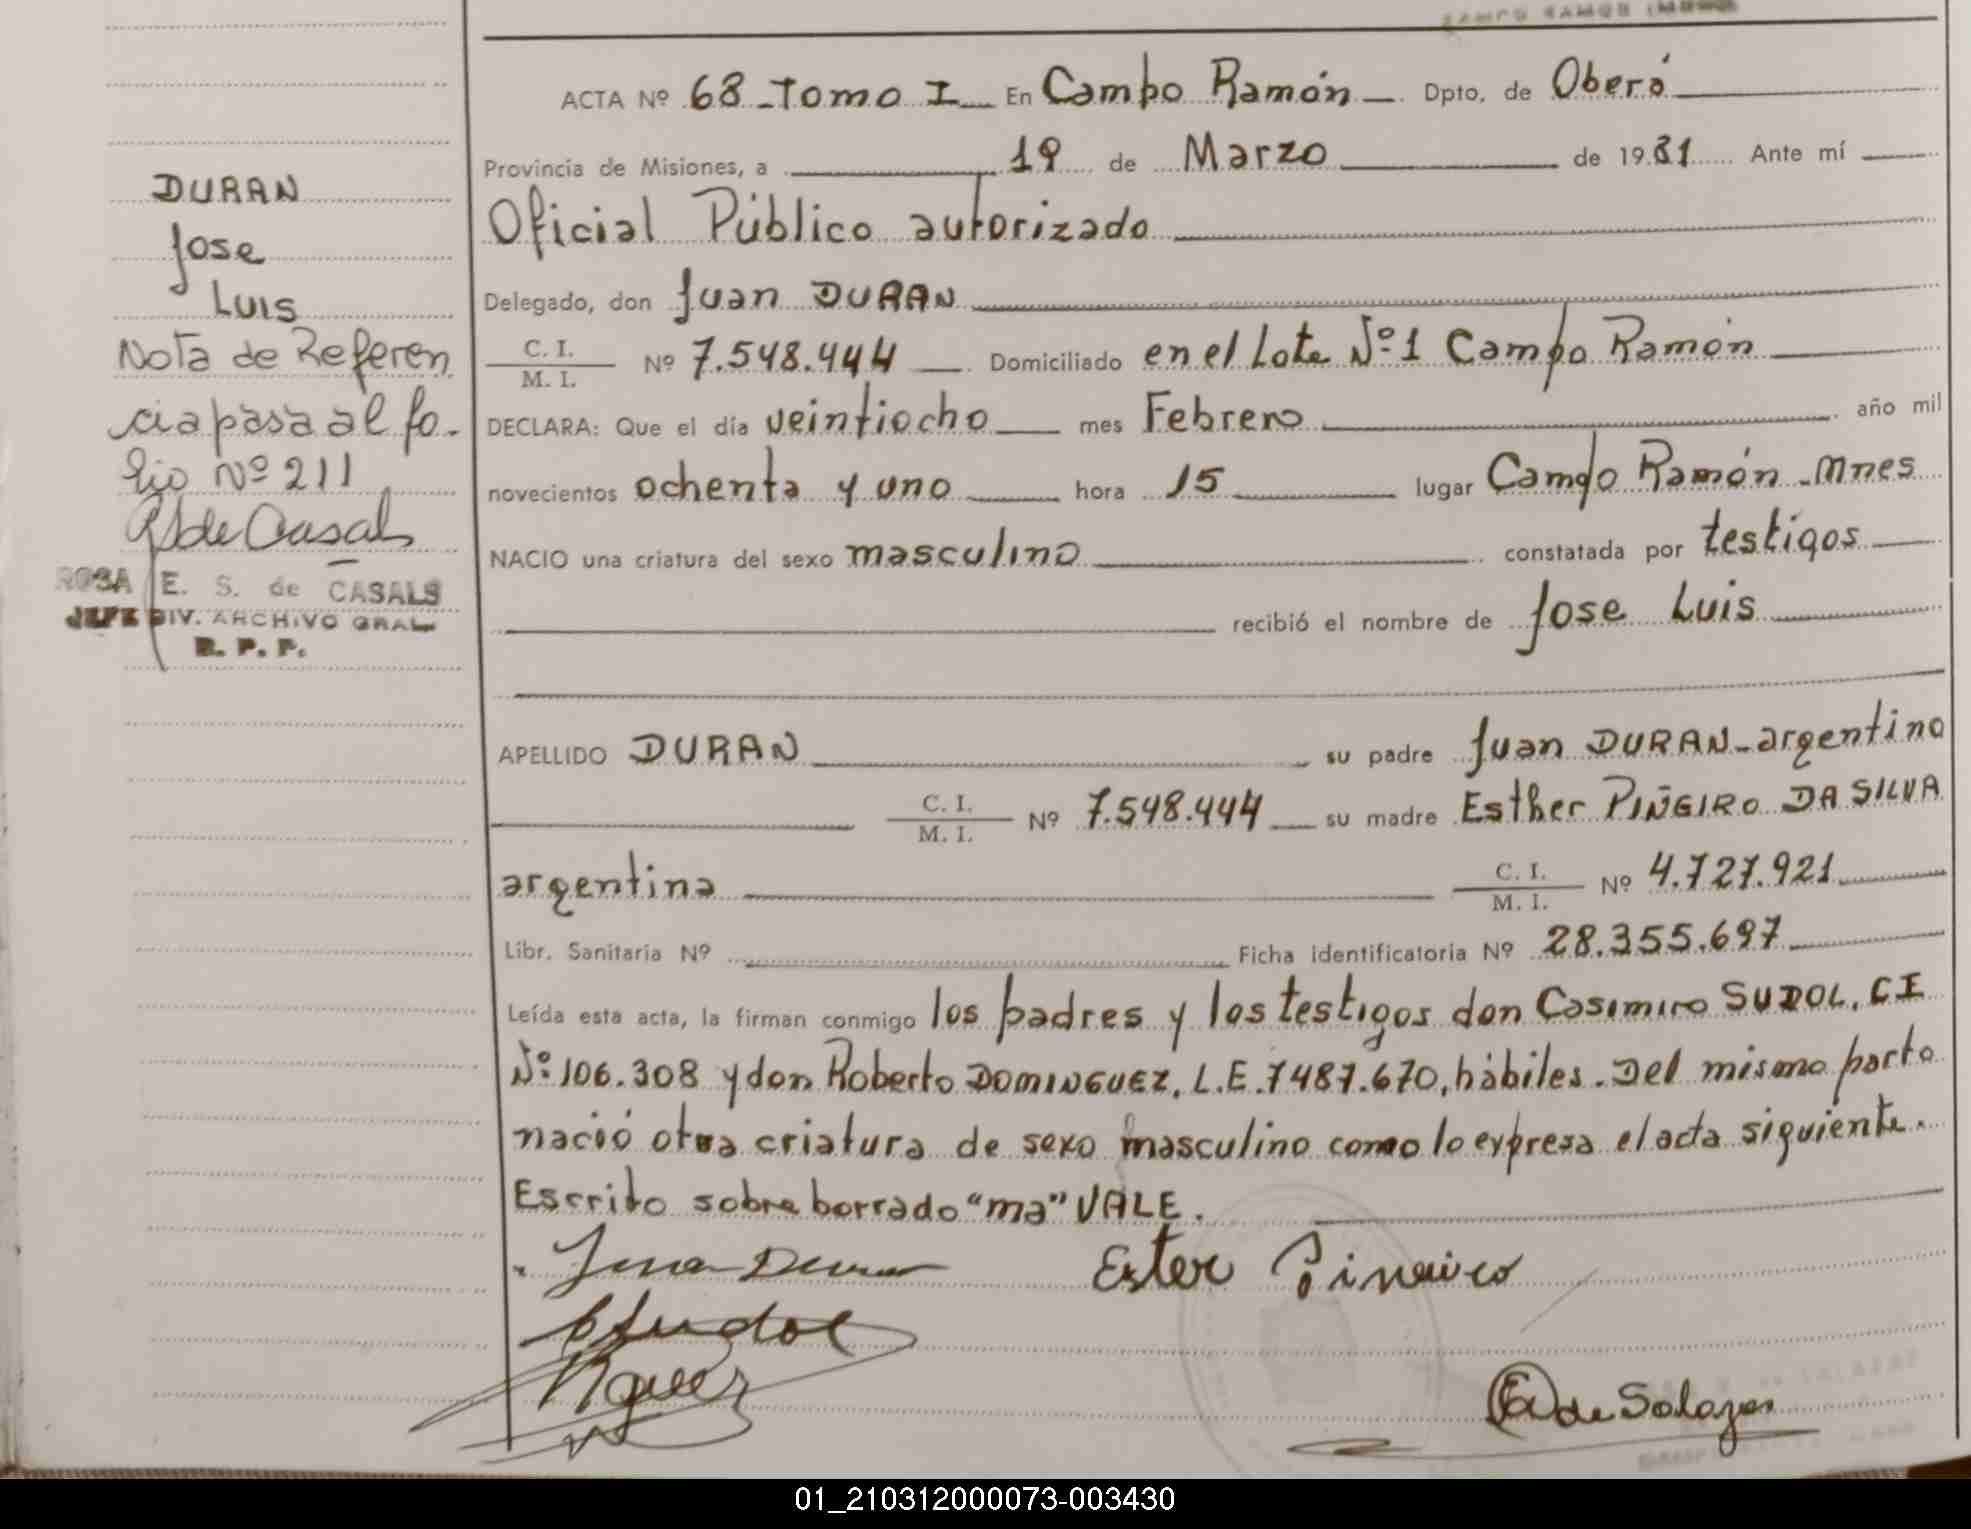 CAMPO RAMON
ACTA Nº 68 - Tomo I En Campo Ramón Dpto. de Oberá
Provincia de Misiones, a 19 de Marzo de 1981 Ante mí
Oficial Público autorizado
Delegado, don Juan DURAN
C. I.
M. I. Nº 7.548.444 Domiciliado en el Lote Nº 1 Campo Ramón
DECLARA: Que el día veintiocho mes Febrero año mil
novecientos ochenta y uno hora 15 lugar Campo Ramón - Mnes
NACIO una criatura del sexo masculino constatada por testigos
recibió el nombre de Jose Luis
APELLIDO DURAN su padre Juan DURAN - argentino
C. I.
M. I. Nº 7.548.444 su madre Esther PIÑEIRO DA SILVA
argentina C. I.
M. I. Nº 4.727.921
Libr. Sanitaria Nº Ficha identificatoria Nº 28.355.697
Leída esta acta, la firman conmigo los padres y los testigos don Casimiro SUDOL, CI
Nº 106.308 y don Roberto DOMINGUEZ, L.E. 7487.670, hábiles. Del mismo parto
nació otra criatura de sexo masculino como lo expresa el acta siguiente.
Escrito sobre borrado "ma" VALE.
Juan Duran Ester Pineiro
CSudol
de Salazar
DURAN
Jose
Luis
Nota de Referen
cia pasa al fo-
lio Nº 211
de Casals
ROSA E. S. de CASALS
JEFE DIV. ARCHIVO GRAL
R. P. P.
01_210312000073-003430